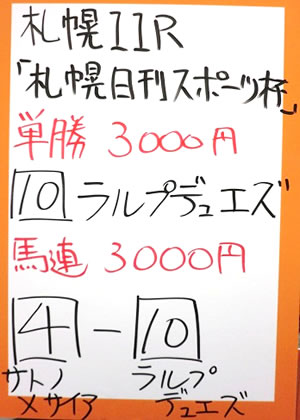 札幌11R
「札幌日刊スポーツ杯」
単勝 3000円
10 ラルプデュエズ
馬連 3000円
4-10
サトノメサイア
ラルプデュエズ